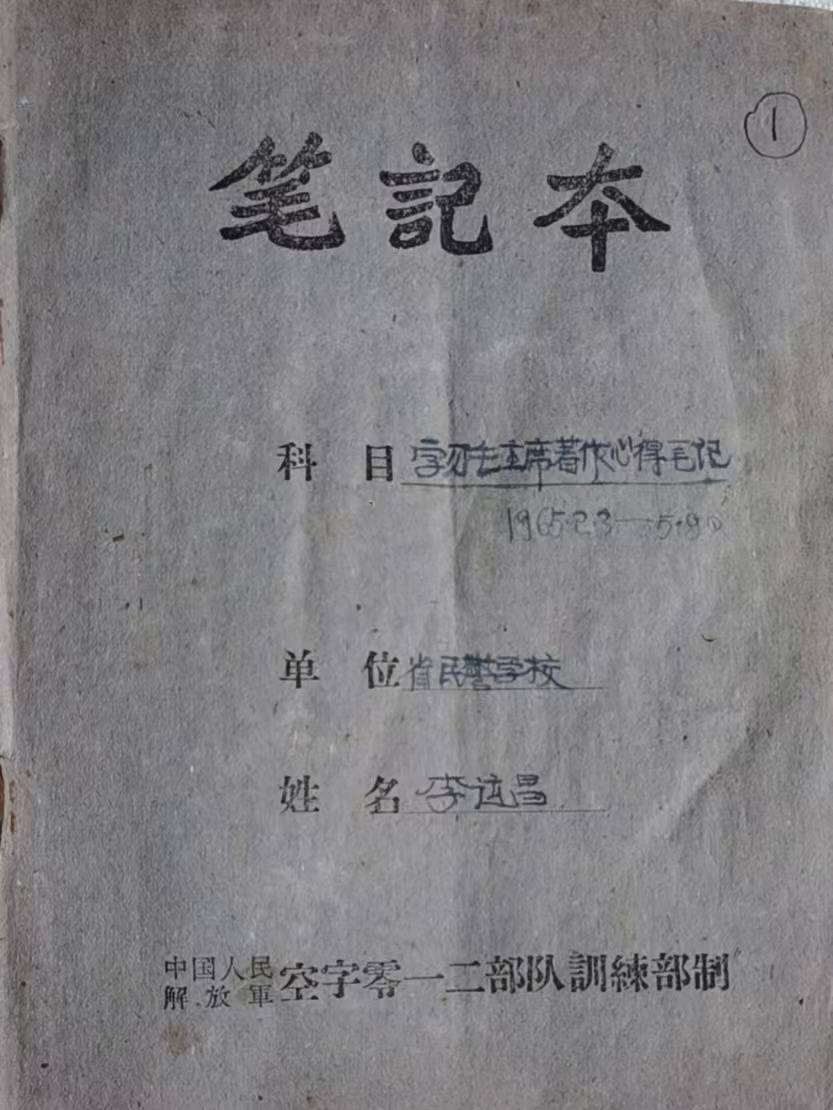 ①
笔記本
科目 学习毛主席著作心得毛记
1965.2.3—5.9
单位 省民警学校
姓名 李远昌
中国人民解放軍空字零一二部队訓練部制